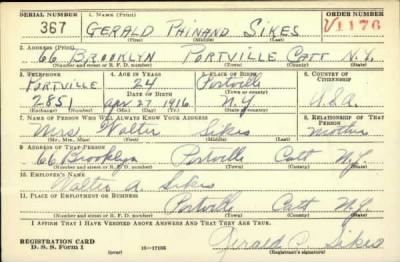 SERIAL NUMBER 1. NAME (Print) ORDER NUMBER
367 GERALD PHINAND SIKES V1176
(First) (Middle) (Last)
2. ADDRESS (Print)
66 BROOKLYN PORTVILLE CATT N.Y.
(Number and street or R. F. D. number) (Town) (County) (State)
3. TELEPHONE 4. AGE IN YEARS 5. PLACE OF BIRTH 6. COUNTRY OF CITIZENSHIP
PORTVILLE 24 Portville
DATE OF BIRTH (Town or county)
2851 Apr 27 1916 N.Y U.S.A.
(Exchange) (Number) (Mo.) (Day) (Yr.) (State or country)
7. NAME OF PERSON WHO WILL ALWAYS KNOW YOUR ADDRESS 8. RELATIONSHIP OF THAT PERSON
Mrs Walter Sikes mother
(Mr., Mrs., Miss) (First) (Middle) (Last)
9. ADDRESS OF THAT PERSON
66 Brooklyn Portville Catt N.Y.
(Number and street or R. F. D. number) (Town) (County) (State)
10. EMPLOYER'S NAME
Walter A. Sikes
11. PLACE OF EMPLOYMENT OR BUSINESS
Portville Catt N.Y.
(Number and street or R. F. D. number) (Town) (County) (State)
I AFFIRM THAT I HAVE VERIFIED ABOVE ANSWERS AND THAT THEY ARE TRUE.
REGISTRATION CARD
D. S. S. Form 1 (over) Gerald P. Sikes
(Registrant's signature)